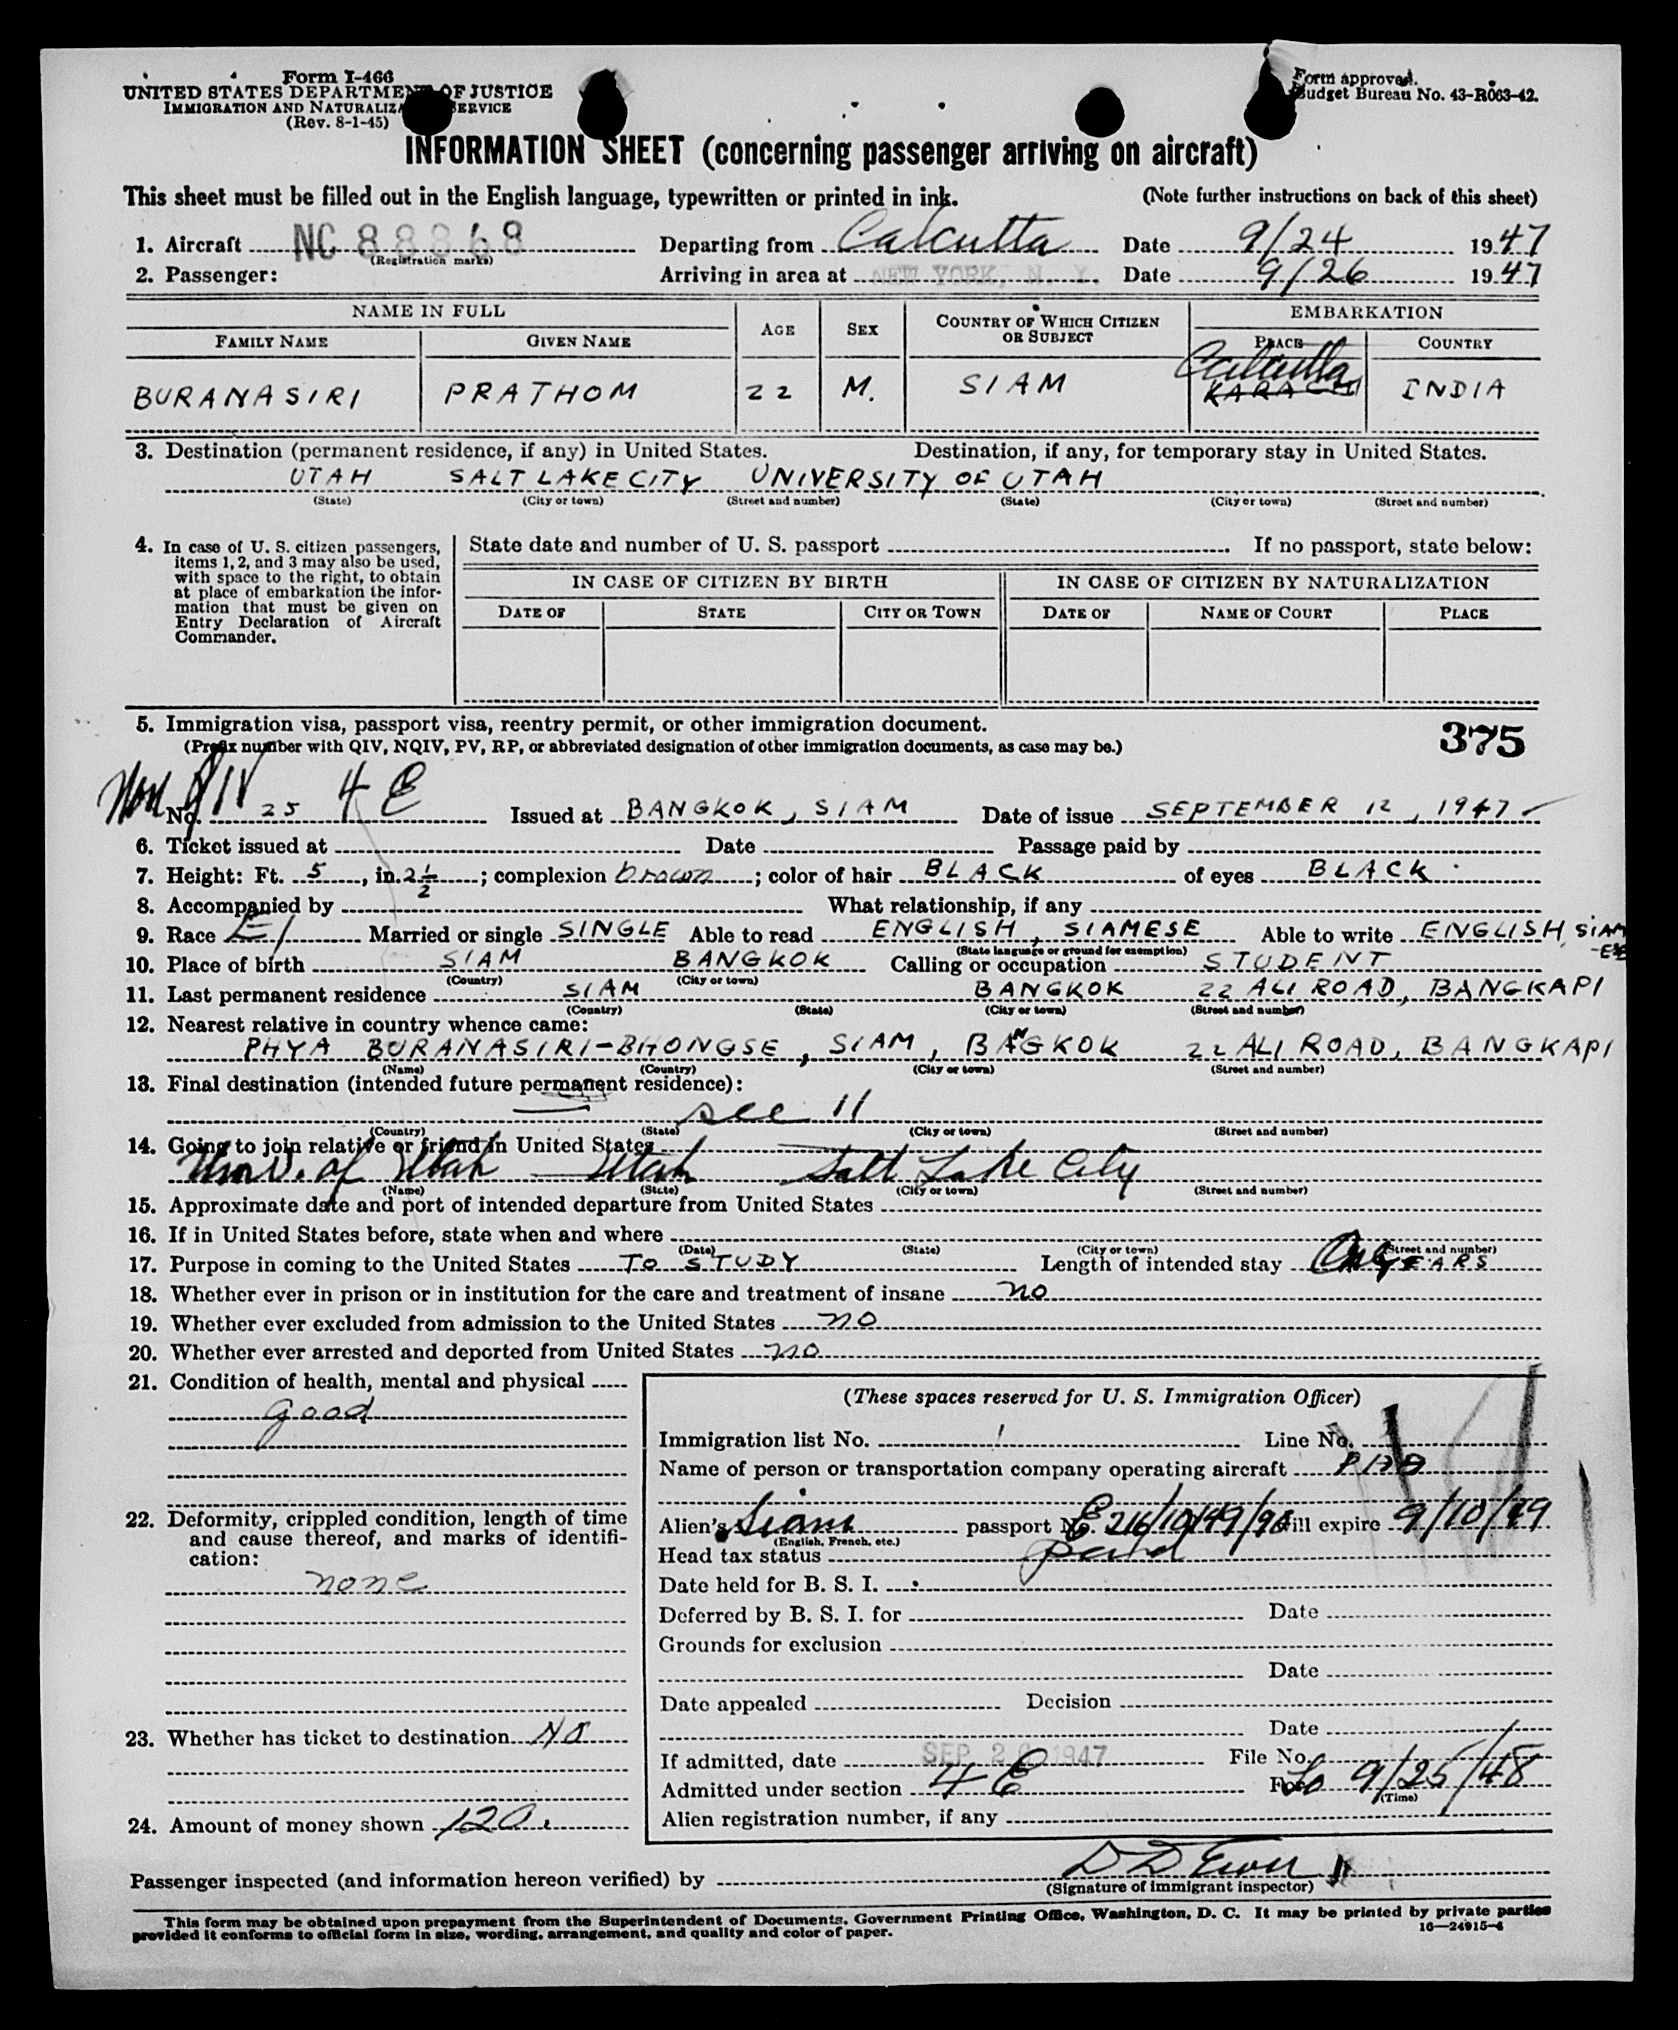 Form I-466
UNITED STATES DEPARTMENT OF JUSTICE
IMMIGRATION AND NATURALIZATION SERVICE
(Rev. 8-1-45)
Form approved.
Budget Bureau No. 43-R063-42.
INFORMATION SHEET (concerning passenger arriving on aircraft)
This sheet must be filled out in the English language, typewritten or printed in ink. (Note further instructions on back of this sheet)
1. Aircraft NC 88868 Departing from Calcutta Date 9/24 1947
(Registration marks)
2. Passenger: Arriving in area at NEW YORK, N. Y. Date 9/26 1947
NAME IN FULL AGE SEX COUNTRY OF WHICH CITIZEN OR SUBJECT EMBARKATION
FAMILY NAME GIVEN NAME PLACE COUNTRY
Calcutta
BURANASIRI PRATHOM 22 M. SIAM KARACHI INDIA
3. Destination (permanent residence, if any) in United States. Destination, if any, for temporary stay in United States.
UTAH SALT LAKE CITY UNIVERSITY OF UTAH
(State) (City or town) (Street and number) (State) (City or town) (Street and number)
4. In case of U. S. citizen passengers, items 1, 2, and 3 may also be used, with space to the right, to obtain at place of embarkation the information that must be given on Entry Declaration of Aircraft Commander.
State date and number of U. S. passport If no passport, state below:
IN CASE OF CITIZEN BY BIRTH IN CASE OF CITIZEN BY NATURALIZATION
DATE OF STATE CITY OR TOWN DATE OF NAME OF COURT PLACE
5. Immigration visa, passport visa, reentry permit, or other immigration document. 375
(Prefix number with QIV, NQIV, PV, RP, or abbreviated designation of other immigration documents, as case may be.)
Non QIV No. 25 4 E Issued at BANGKOK, SIAM Date of issue SEPTEMBER 12, 1947
6. Ticket issued at Date Passage paid by
7. Height: Ft. 5, in. 2 1/2; complexion brown; color of hair BLACK of eyes BLACK
8. Accompanied by What relationship, if any
9. Race E/ Married or single SINGLE Able to read ENGLISH, SIAMESE Able to write ENGLISH, SIAM-ESE
(State language or ground for exemption)
10. Place of birth SIAM BANGKOK Calling or occupation STUDENT
(Country) (City or town)
11. Last permanent residence SIAM BANGKOK 22 ALI ROAD, BANGKAPI
(Country) (State) (City or town) (Street and number)
12. Nearest relative in country whence came:
PHYA BURANASIRI-BHONGSE, SIAM, BANGKOK 22 ALI ROAD, BANGKAPI
(Name) (Country) (City or town) (Street and number)
13. Final destination (intended future permanent residence):
see 11
(Country) (State) (City or town) (Street and number)
14. Going to join relative or friend in United States
Univ. of Utah Utah Salt Lake City
(Name) (State) (City or town) (Street and number)
15. Approximate date and port of intended departure from United States
16. If in United States before, state when and where
(Date) (State) (City or town) (Street and number)
17. Purpose in coming to the United States TO STUDY Length of intended stay One YEARS
18. Whether ever in prison or in institution for the care and treatment of insane no
19. Whether ever excluded from admission to the United States no
20. Whether ever arrested and deported from United States no
21. Condition of health, mental and physical
good
22. Deformity, crippled condition, length of time and cause thereof, and marks of identification:
none
23. Whether has ticket to destination NO
24. Amount of money shown 120.
(These spaces reserved for U. S. Immigration Officer)
Immigration list No. 1 Line No.
Name of person or transportation company operating aircraft PAA
Alien's Siam passport No. E 216/10149/90 will expire 9/10/49
(English, French, etc.)
Head tax status paid
Date held for B. S. I.
Deferred by B. S. I. for Date
Grounds for exclusion
Date
Date appealed Decision
Date
If admitted, date SEP 26 1947 File No.
Admitted under section 4 E For to 9/25/48
(Time)
Alien registration number, if any
Passenger inspected (and information hereon verified) by
(Signature of immigrant inspector)
This form may be obtained upon prepayment from the Superintendent of Documents, Government Printing Office, Washington, D. C. It may be printed by private parties
provided it conforms to official form in size, wording, arrangement, and quality and color of paper. 16—24915-4